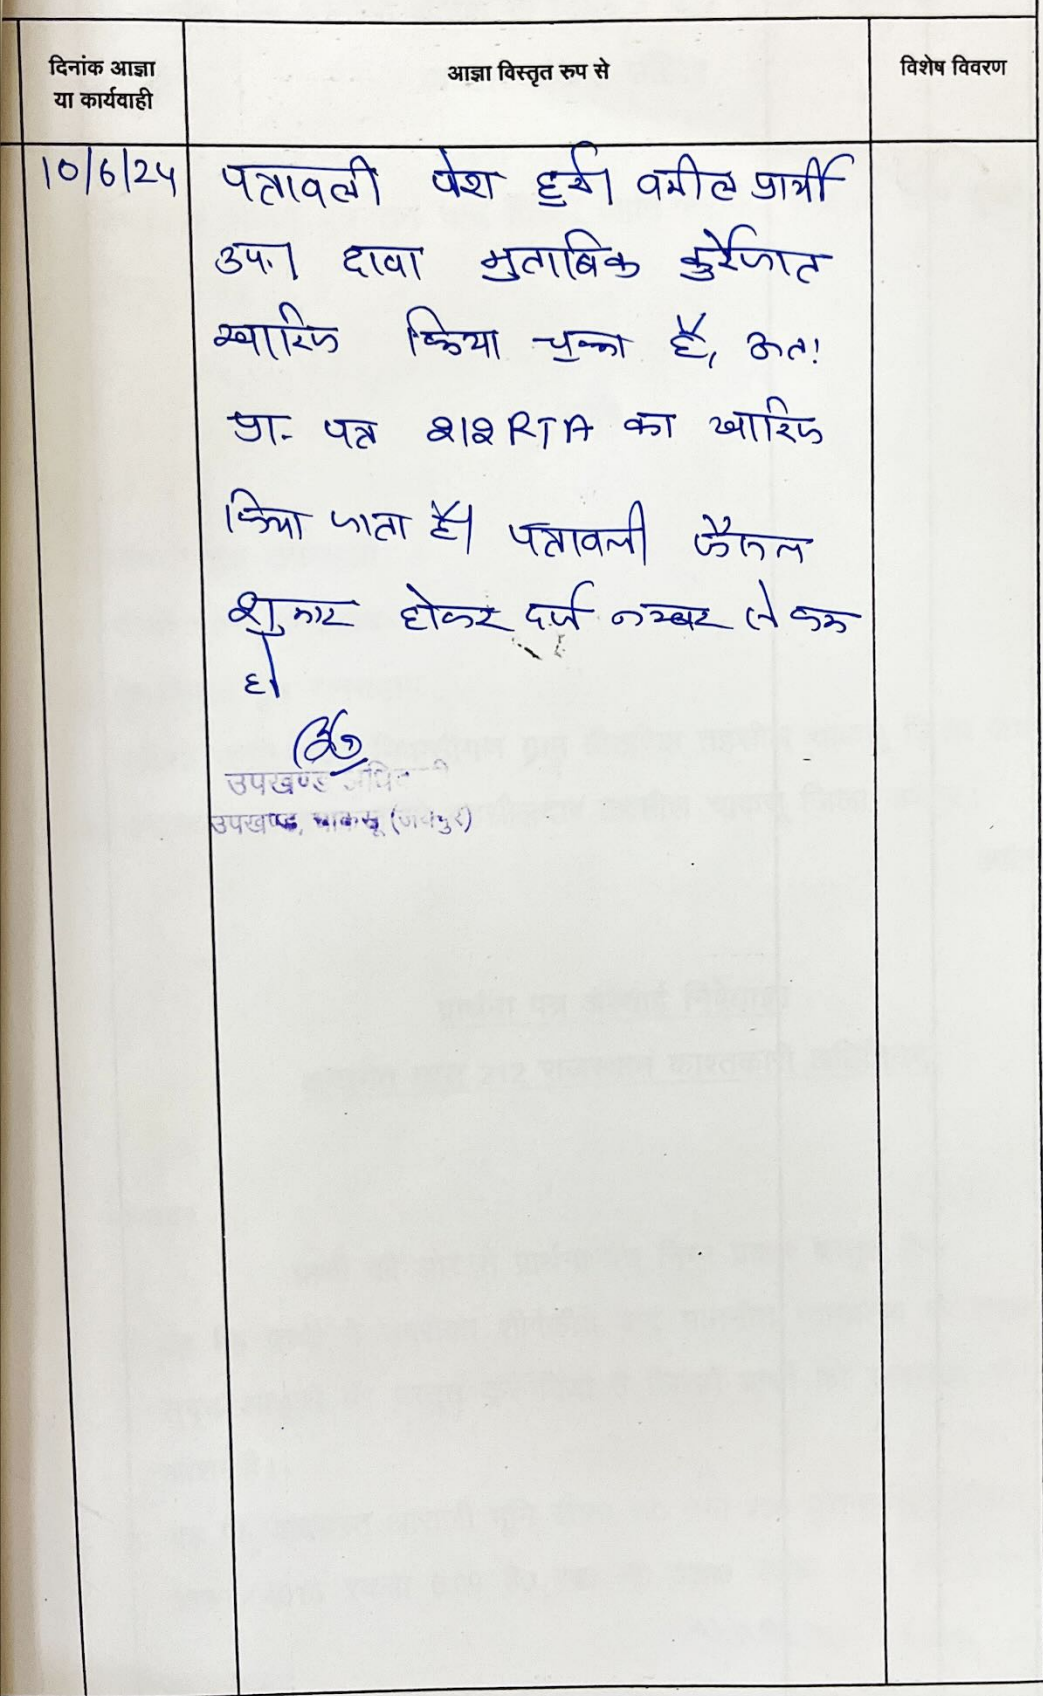 दिनांक आज्ञा
या कार्यवाही
आज्ञा विस्तृत रुप से
विशेष विवरण
10/6/24
पत्रावली पेश हुई। वकील प्रार्थी
उप.। दावा मुताबिक कुर्रेजात
खारिज किया चुका है, अतः
प्रा- पत्र २१२ RTA का खारिज
किया जाता है। पत्रावली फैसल
शुमार होकर दर्ज नम्बर से कम
हो
उपखण्ड
उपखण्ड, चाकसू (जयपुर)